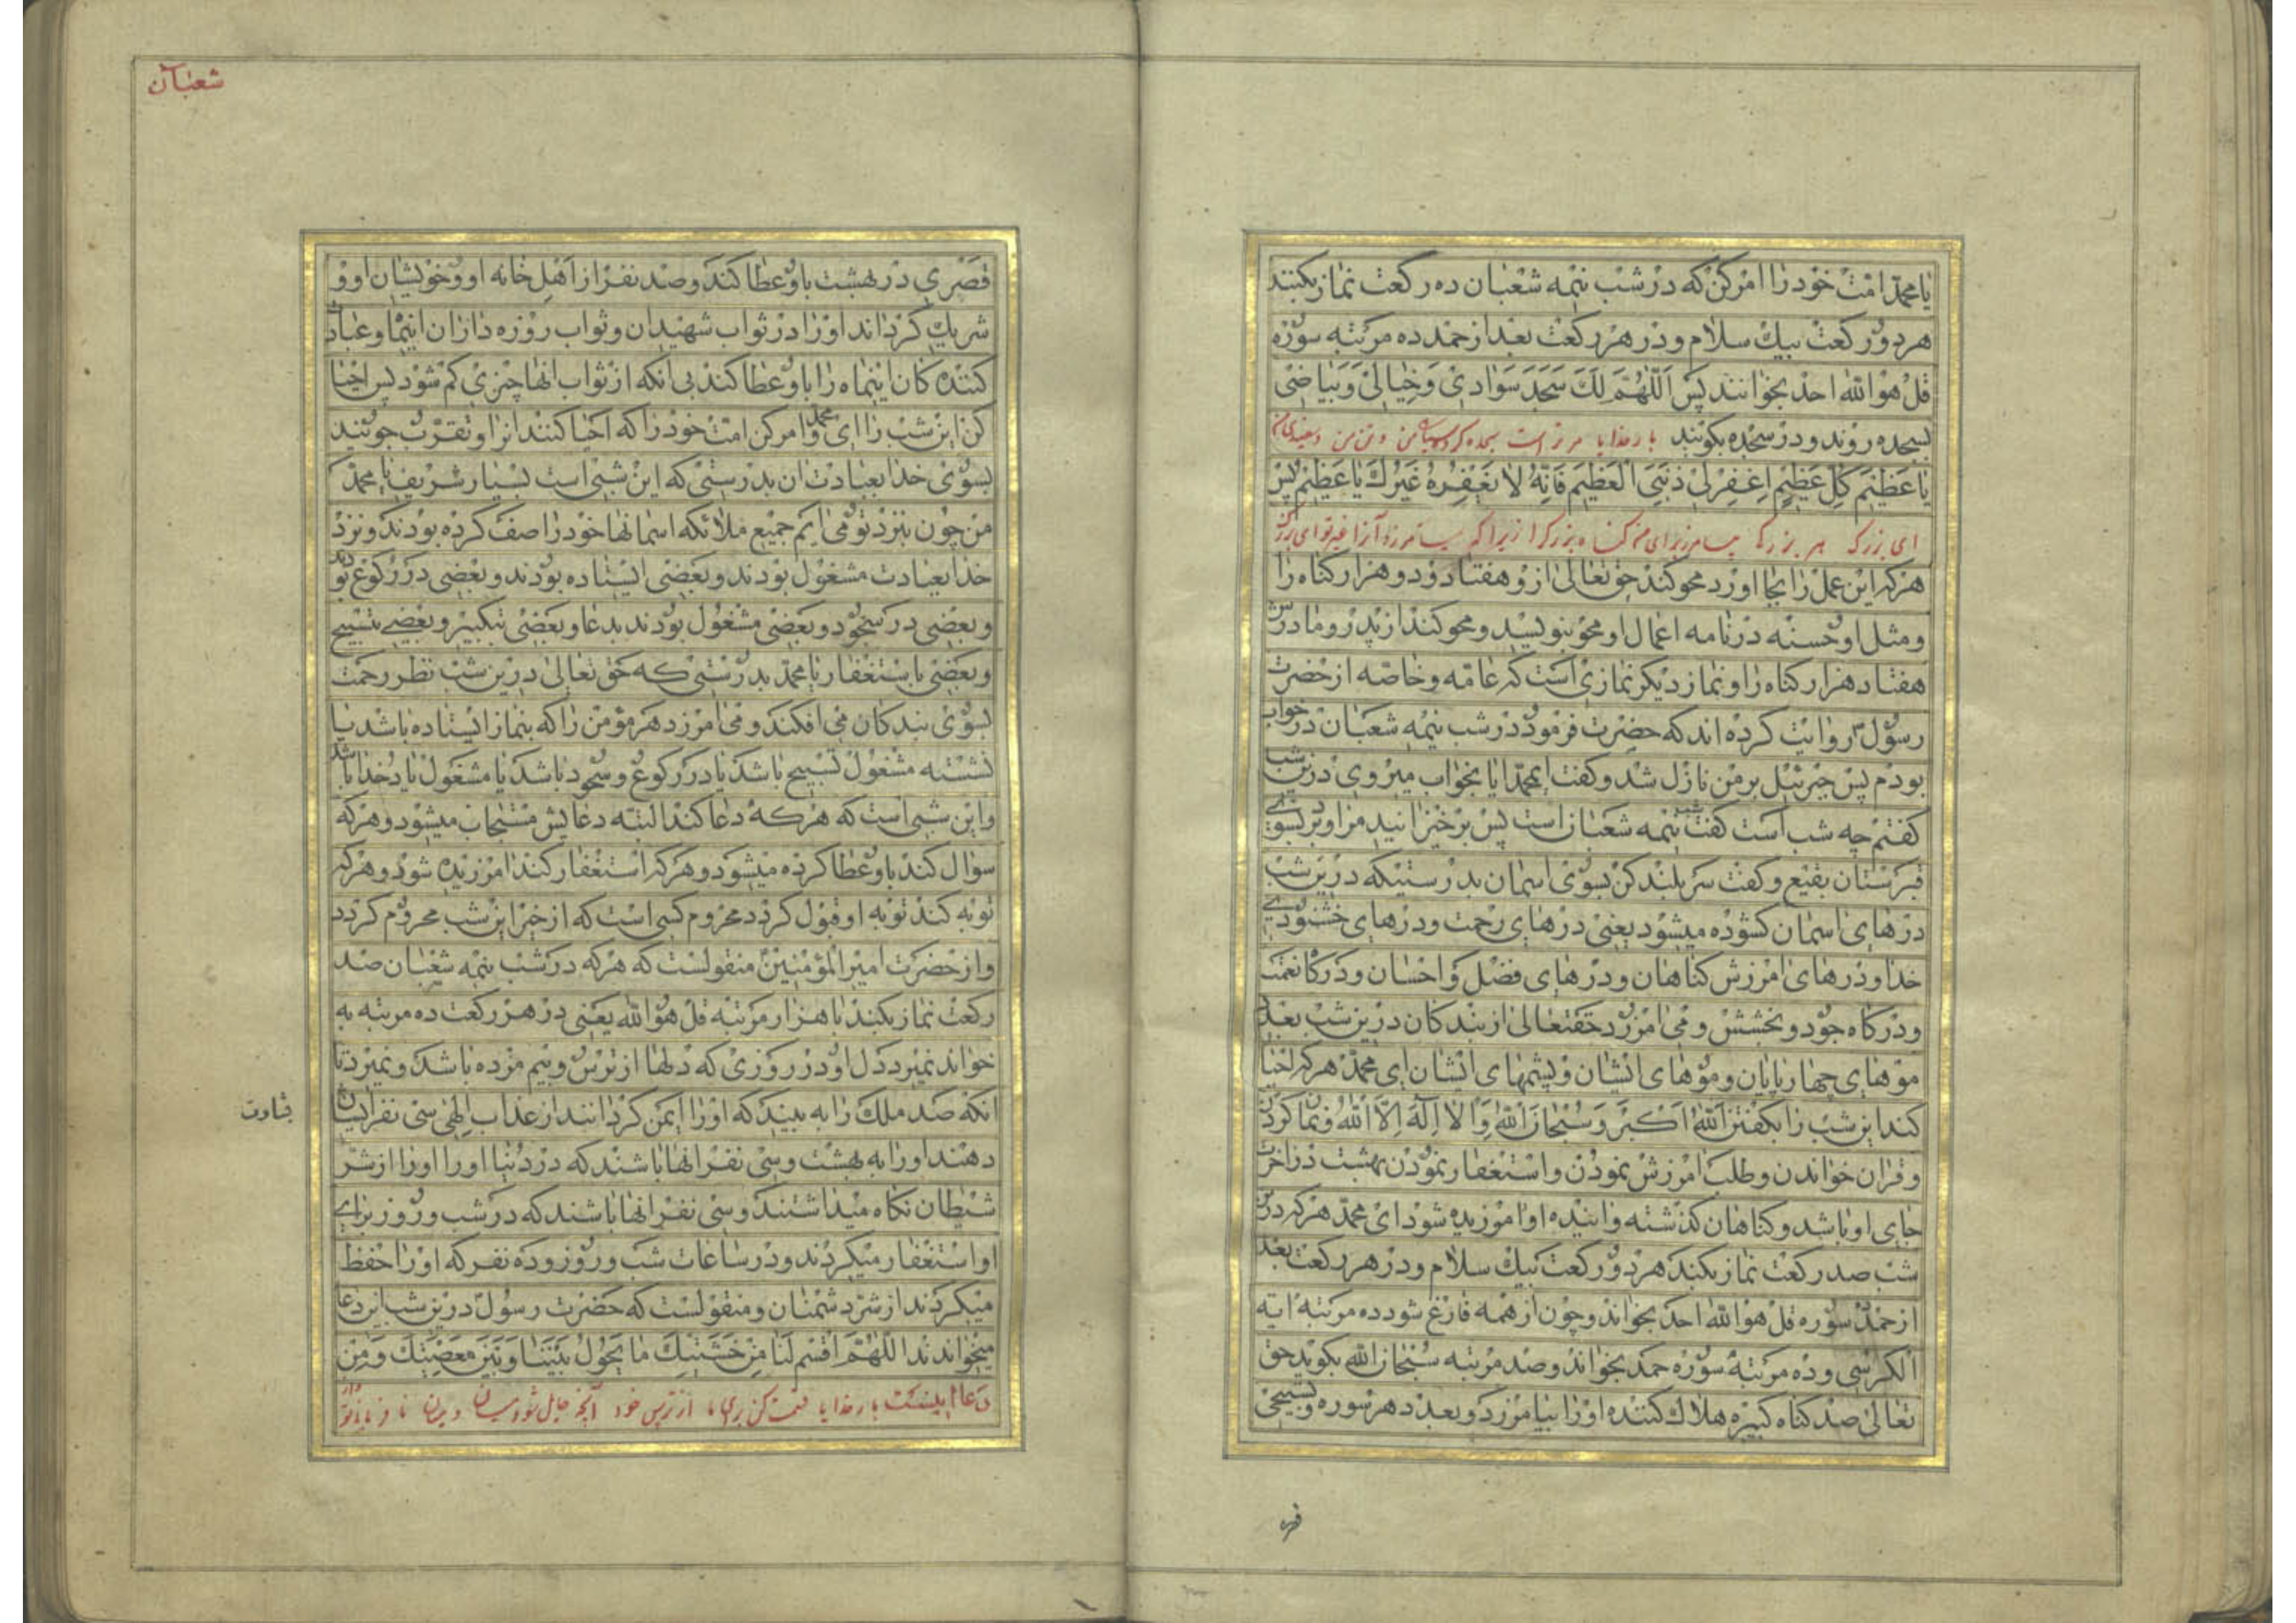 یا محمد امت خود را امر کن که در شب نیمه شعبان ده رکعت نماز بکنند
هر دو رکعت بیک سلام و در هر رکعت بعد از حمد ده مرتبه سوره
قل هو الله احد بخوانند پس اَللّٰهُمَّ لَکَ سَجَدَ سَوَادِیْ وَخِیَالِیْ وَبَیَاضِیْ
بسجده روند و در سجده بکویند بار خدایا مر تراست سجده کرد سیاهی من و تن من و سفیدی من
یَا عَظِیْمَ کُلِّ عَظِیْمٍ اِغْفِرْ لِیْ ذَنْبِیَ الْعَظِیْمَ فَاِنَّهُ لَا یَغْفِرُهُ غَیْرُكَ یَا عَظِیْمُ پس
ای بزرک هر بزرک بیامرز برای من کناه بزرک را زیرا که نیامرزد آنرا غیر تو ای بزرک
هر که این عمل را بجا اورد محو کند حق تعالی از و هفتاد و دو هزار کناه را
و مثل او حسنه در نامه اعمال او محو بنویسد و محو کند از پدر و مادرش
هفتاد هزار کناه را و نماز دیکر نمازی است که عامه و خاصه از حضرت
رسول روایت کرده اند که حضرت فرمود در شب نیمه شعبان در خواب
بودم پس جبرئیل بر من نازل شد و کفت ایمحمد ایا بخواب میروی درین شب
کفتم چه شب است کفت شب نیمه شعبان است پس برخیزانید مرا و برد بسوی
قبرستان بقیع و کفت سر بلند کن بسوی اسمان بدرستیکه درین شب
درهای اسمان کشوده میشود یعنی درهای رحمت و درهای خشنودی
خدا و درهای امرزش کناهان و درهای فضل و احسان و درکاه نعمت
و درکاه جود و بخشش و می امرزد حقتعالی از بندکان درین شب بعدد
موهای چهارپایان و موهای ایشان و پشمهای ایشان ای محمد هر که احیا
کند این شب را بکفتن اَللّٰهُ اَکْبَرُ وَ سُبْحَانَ اللّٰهِ وَ لَا اِلٰهَ اِلَّا اللّٰهُ و نماز کردن
و قران خواندن و طلب امرزش نمودن و استغفار نمودن بهشت در اخرت
جای او باشد و کناهان کذشته و اینده او امرزیده شود ای محمد هر که درین
شب صد رکعت نماز بکند هر دو رکعت بیک سلام و در هر رکعت بعد
از حمد سوره قل هو الله احد بخواند و چون از همه فارغ شود ده مرتبه ایه
الکرسی و ده مرتبه سوره حمد بخواند و صد مرتبه سبحان الله بکوید حق
تعالی صد کناه کبیره هلاک کننده او را بیامرزد و بعدد هر سوره و تسبیحی
شعبان
قصری در بهشت باو عطا کند و صد نفر از اهل خانه او و خویشان او و
شریک کرداند او را در ثواب شهیدان و ثواب روزه داران اینماه و عبادت
کننده کان اینماه را باو عطا کند بی انکه از ثواب انها چیزی کم شود پس احیا
کن این شب را ای محمد و امر کن امت خود را که احیا کنند انرا و تقرب جویند
بسوی خدا بعبادت ان بدرستی که این شبی است بسیار شریف یا محمد
من چون بنزد تو می ایم جمیع ملائکه اسمانها خود را صف کرده بودند و نزد
خدا بعبادت مشغول بودند و بعضی ایستاده بودند و بعضی در رکوع بودند
و بعضی در سجود و بعضی مشغول بودند بدعا و بعضی بتکبیر و بعضی بتسبیح
و بعضی باستغفار یا محمد بدرستی که حق تعالی درین شب نظر رحمت
بسوی بندکان می افکند و می امرزد هر مؤمن را که بنماز ایستاده باشد یا
نشسته مشغول تسبیح باشد یا در رکوع و سجود باشد یا مشغول یاد خدا باشد
و این شبی است که هر که دعا کند البته دعایش مستجاب میشود و هر که
سوال کند باو عطا کرده میشود و هر که استغفار کند امرزیده شود و هر که
توبه کند توبه او قبول کردد محروم کسی است که از خیر این شب محروم کردد
و از حضرت امیرالمؤمنین منقولست که هر که در شب نیمه شعبان صد
رکعت نماز بکند با هزار مرتبه قل هو الله یعنی در هر رکعت ده مرتبه به
خواند نمیرد دل او در روزی که دلها از ترس و بیم مرده باشد و نمیرد تا
انکه صد ملک را به بیند که او را ایمن کردانند از عذاب الهی سی نفر ایشان
بشارت
دهند او را به بهشت و سی نفر انها باشند که در دنیا او را او را از شر
شیطان نکاه میداشتند و سی نفر انها باشند که در شب و روز برای
او استغفار میکردند و در ساعات شب و روز و ده نفر که او را حفظ
میکردند از شر دشمنان و منقولست که حضرت رسول درین شب این دعا
میخواندند اَللّٰهُمَّ اقْسِمْ لَنَا مِنْ خَشْیَتِكَ مَا یَحُوْلُ بَیْنَنَا وَبَیْنَ مَعْصِیَتِكَ وَمِنْ
دعا اینست بار خدایا قسمت کن برای ما از ترس خود آنچه حایل شود میان ما و میان نافرمانی تو